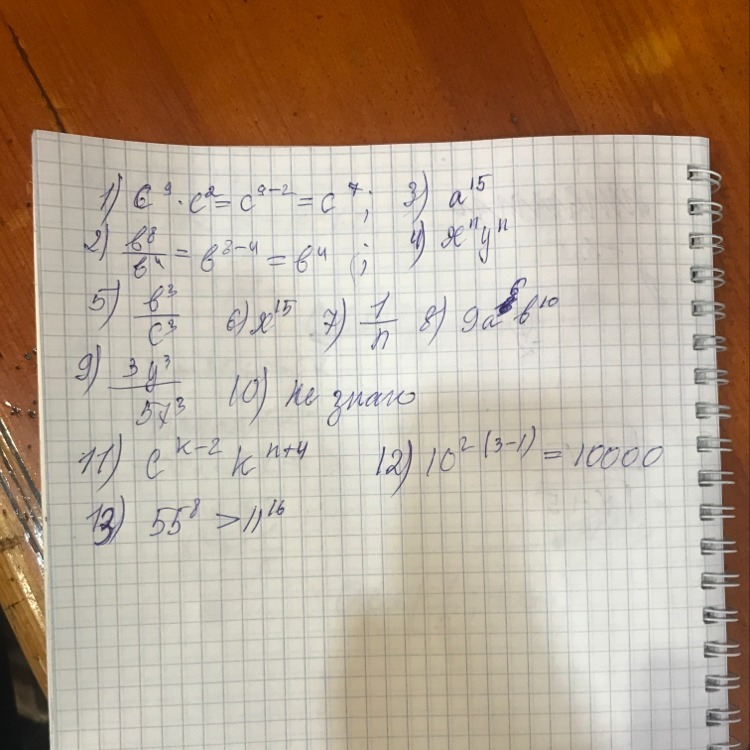 1) c⁹ · c² = c⁹⁻² = c⁷; 3) a¹⁵
2) в⁸/в⁴ = в⁸⁻⁴ = в⁴ ; 4) xⁿyⁿ
5) в³/c³ 6) x¹⁵ 7) 1/n 8) 9a⁶в¹⁰
9) 3y³/5x³ 10) не знаю
11) c^(k-2) k^(n+4) 12) 10^(2(3-1)) = 10000
13) 55⁸ > 11¹⁶